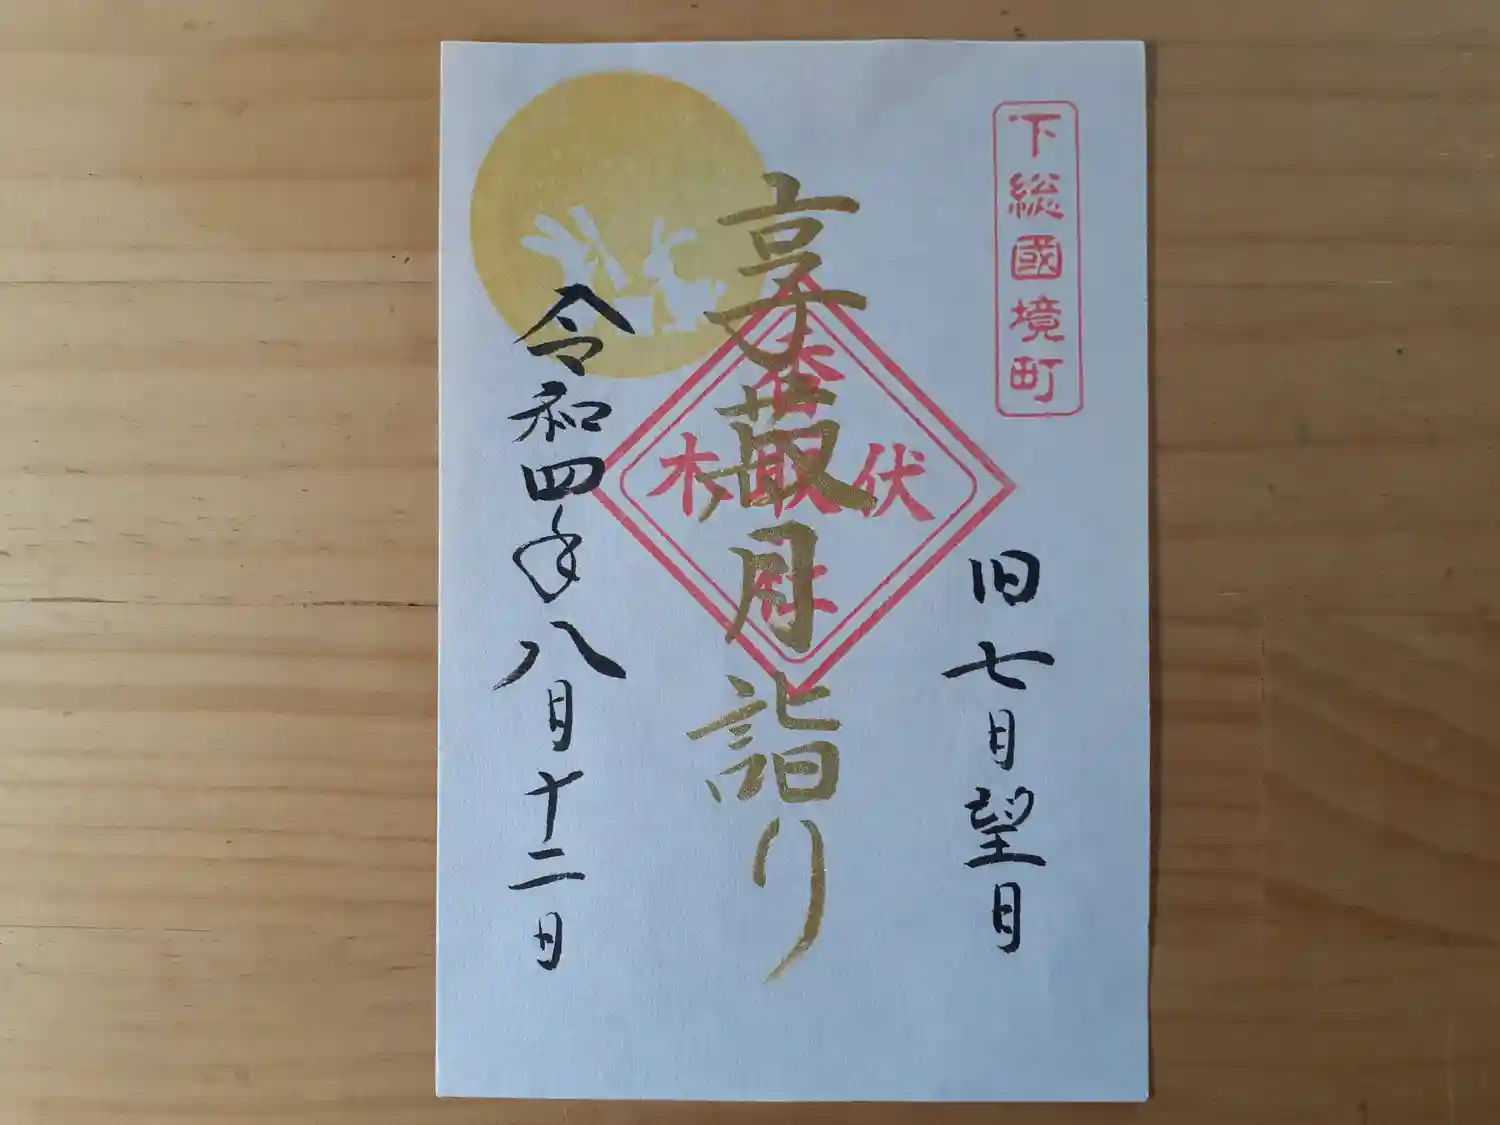 下総國境町
旧七月望日
月詣り
香取社
伏木
令和四年八月十二日